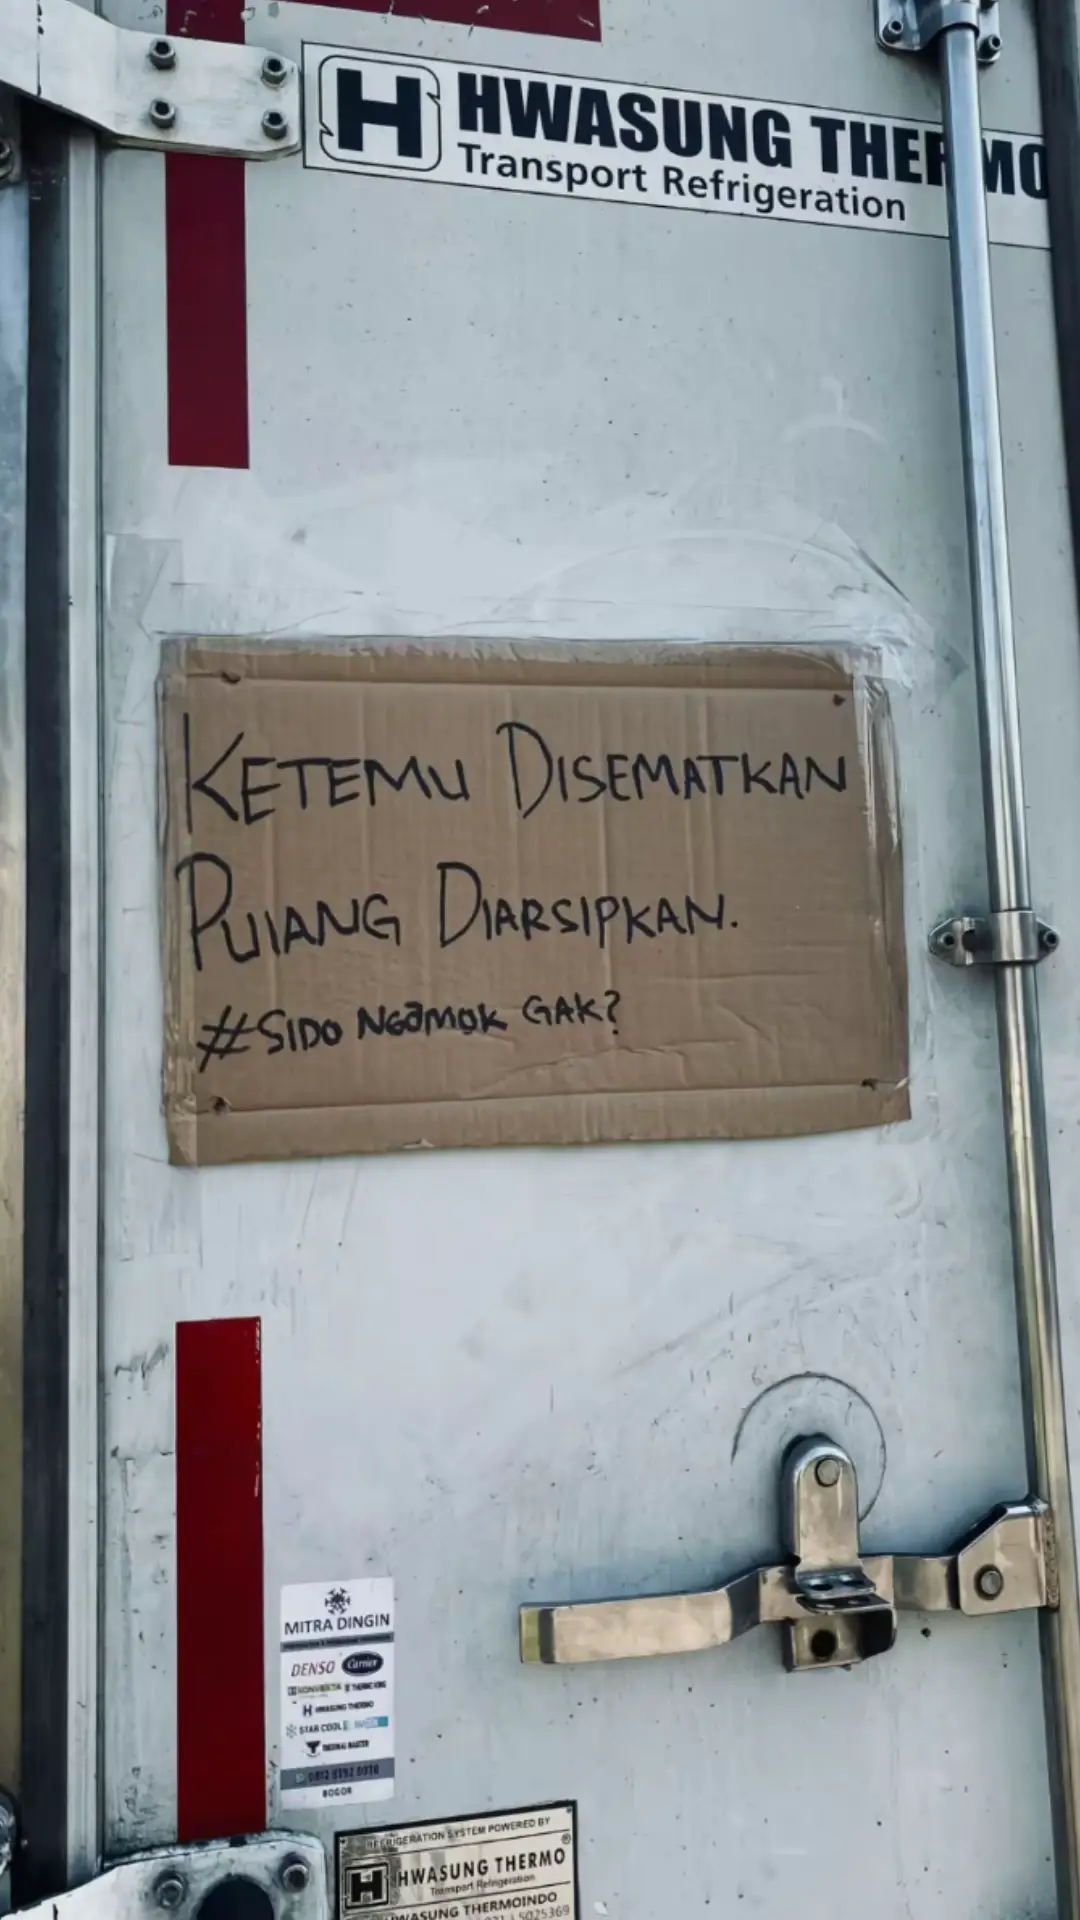 H HWASUNG THERMO
Transport Refrigeration
KETEMU DISEMATKAN
PULANG DIARSIPKAN.
#SIDO NGAMOK GAK?
MITRA DINGIN
DENSO Carrier
KONVEKTA THERMO KING
HWASUNG THERMO
STAR COOL
THERMAL MASTER
BOGOR
REFRIGERATION SYSTEM POWERED BY
H HWASUNG THERMO ®
Transport Refrigeration
HWASUNG THERMOINDO
5025369